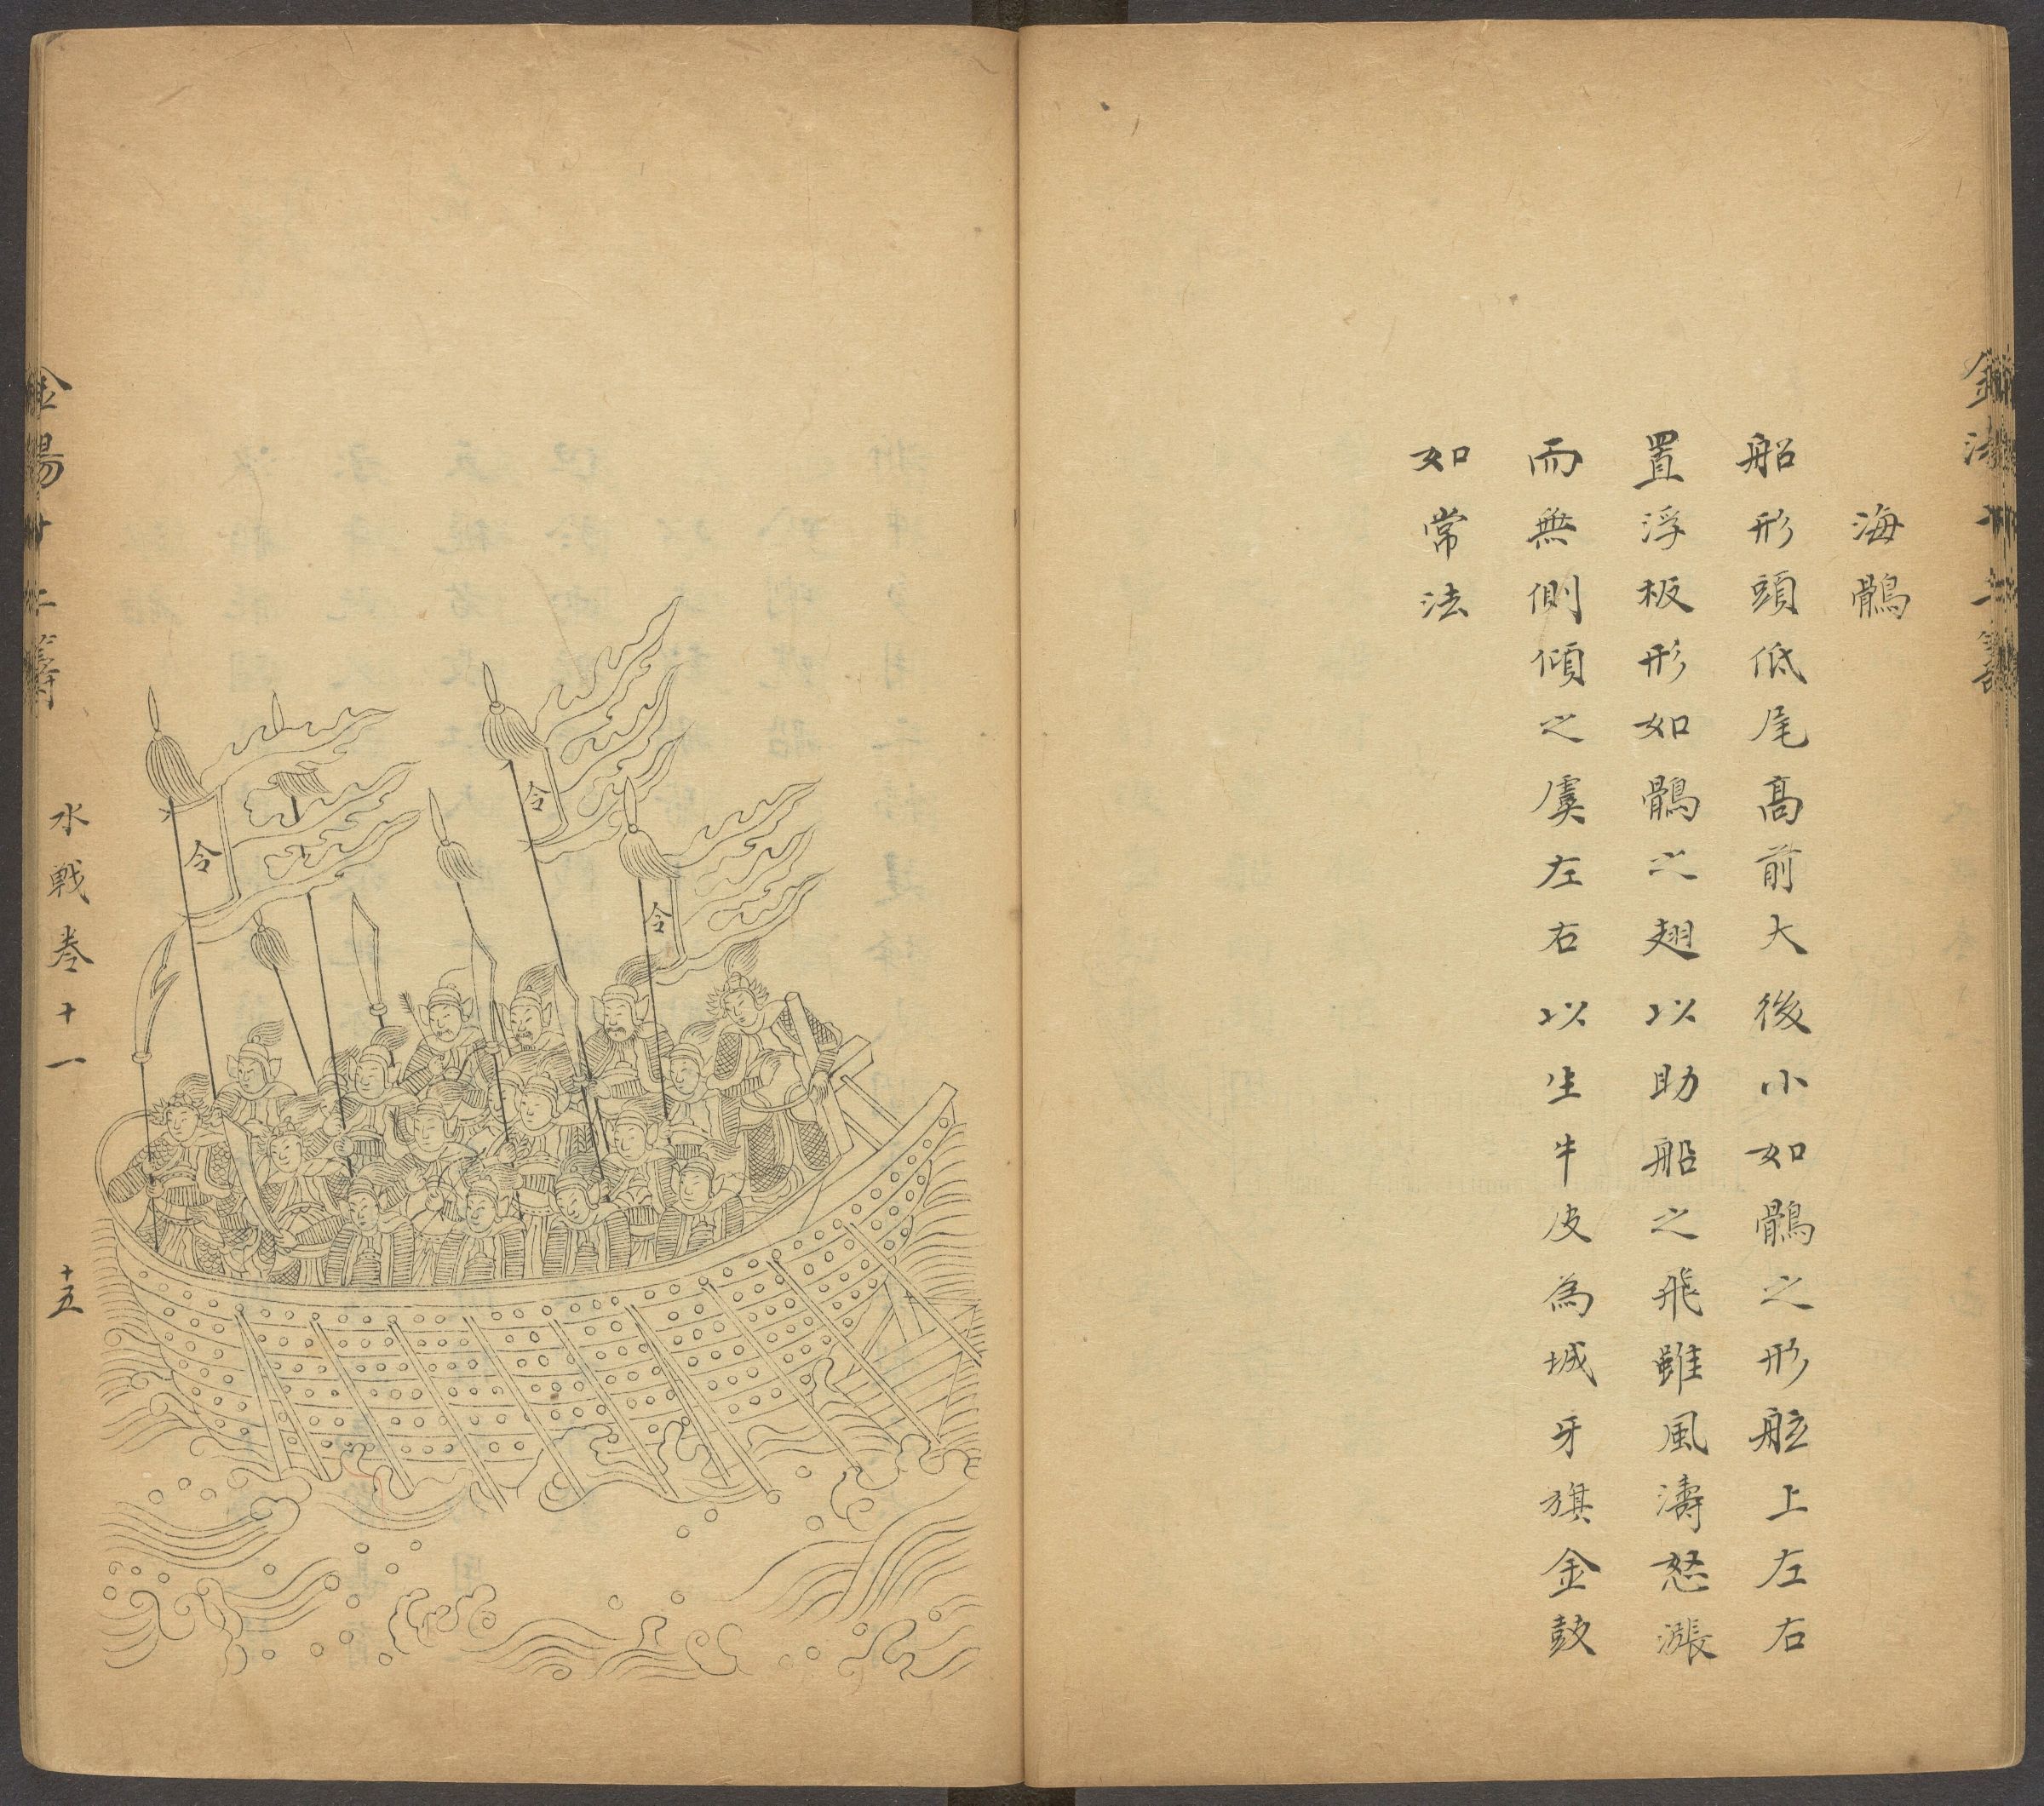 海鶻
船形頭低尾髙前大後小如鶻之形舷上左右
置浮板形如鶻之翅以助船之飛雖風濤怒漲
而無側傾之虞左右以生牛皮為城牙旗金鼓
如常法
金湯十二籌
水戰卷十一
十五
令
令
令